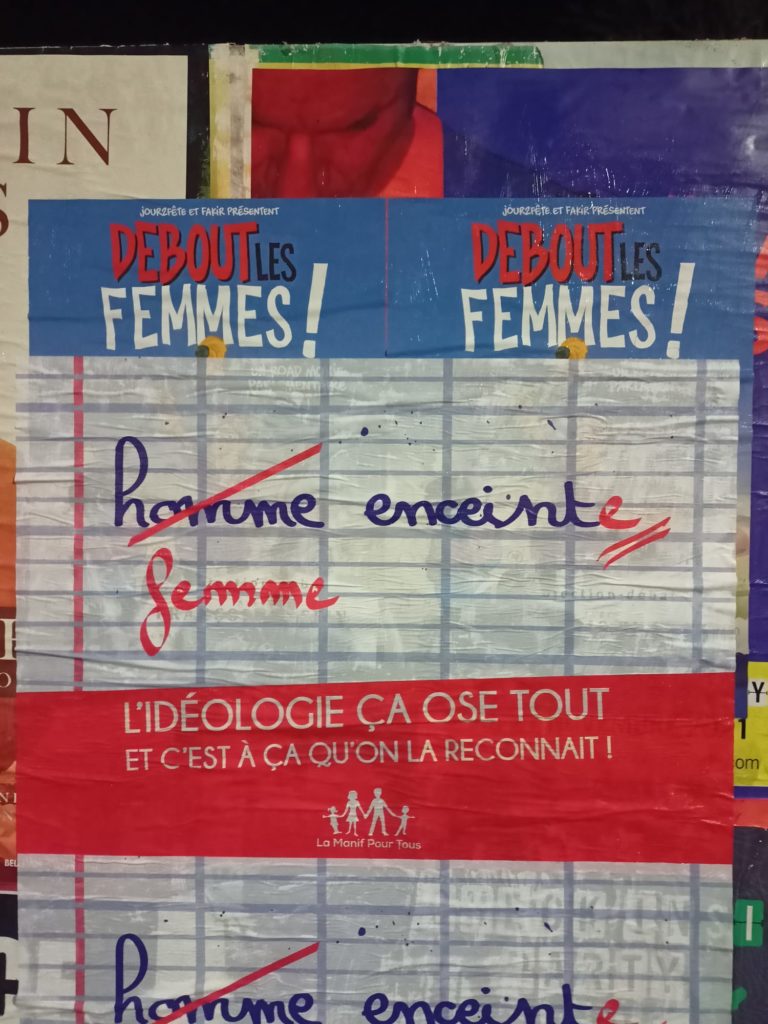 IN
S
JOUR2FÊTE ET FAKIR PRÉSENTENT
DEBOUT LES
FEMMES !
JOUR2FÊTE ET FAKIR PRÉSENTENT
DEBOUT LES
FEMMES !
homme enceinte
femme
L'IDÉOLOGIE ÇA OSE TOUT
ET C'EST À ÇA QU'ON LA RECONNAIT !
La Manif Pour Tous
Y
1
.com
BEL
I
homme enceinte